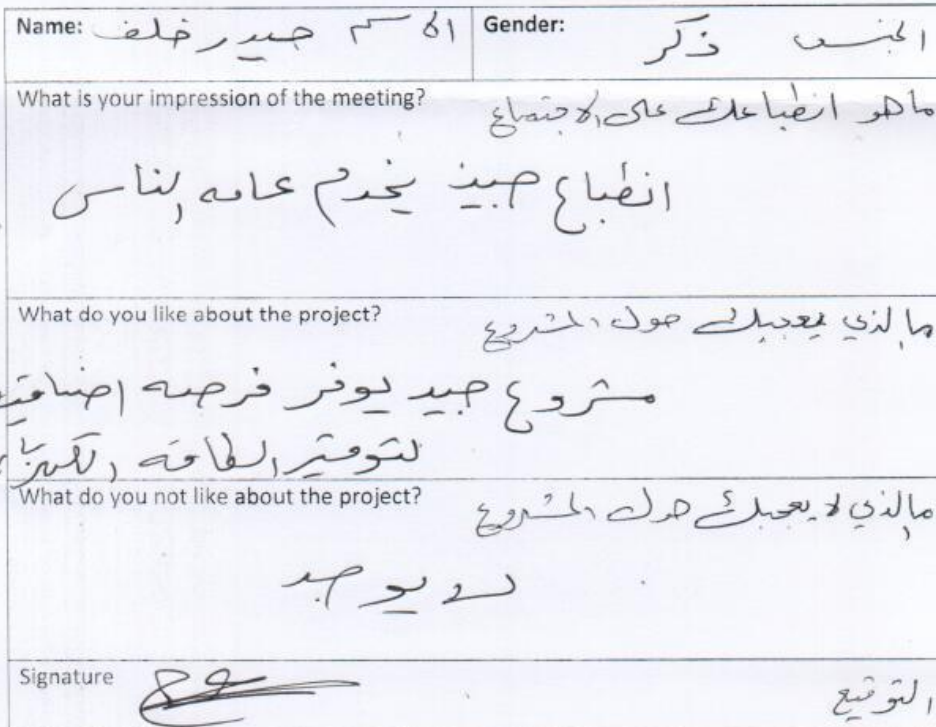 Name: الاسم حيدر خلف
Gender: الجنس ذكر
What is your impression of the meeting? ماهو انطباعك على الاجتماع
انطباع جيد يخدم عامه الناس
What do you like about the project? مالذي يعجبك حول المشروع
مشروع جيد يوفر فرصه اضافيه
لتوفير الطاقه
What do you not like about the project? مالذي لا يعجبك حول المشروع
لا يوجد
Signature التوقيع